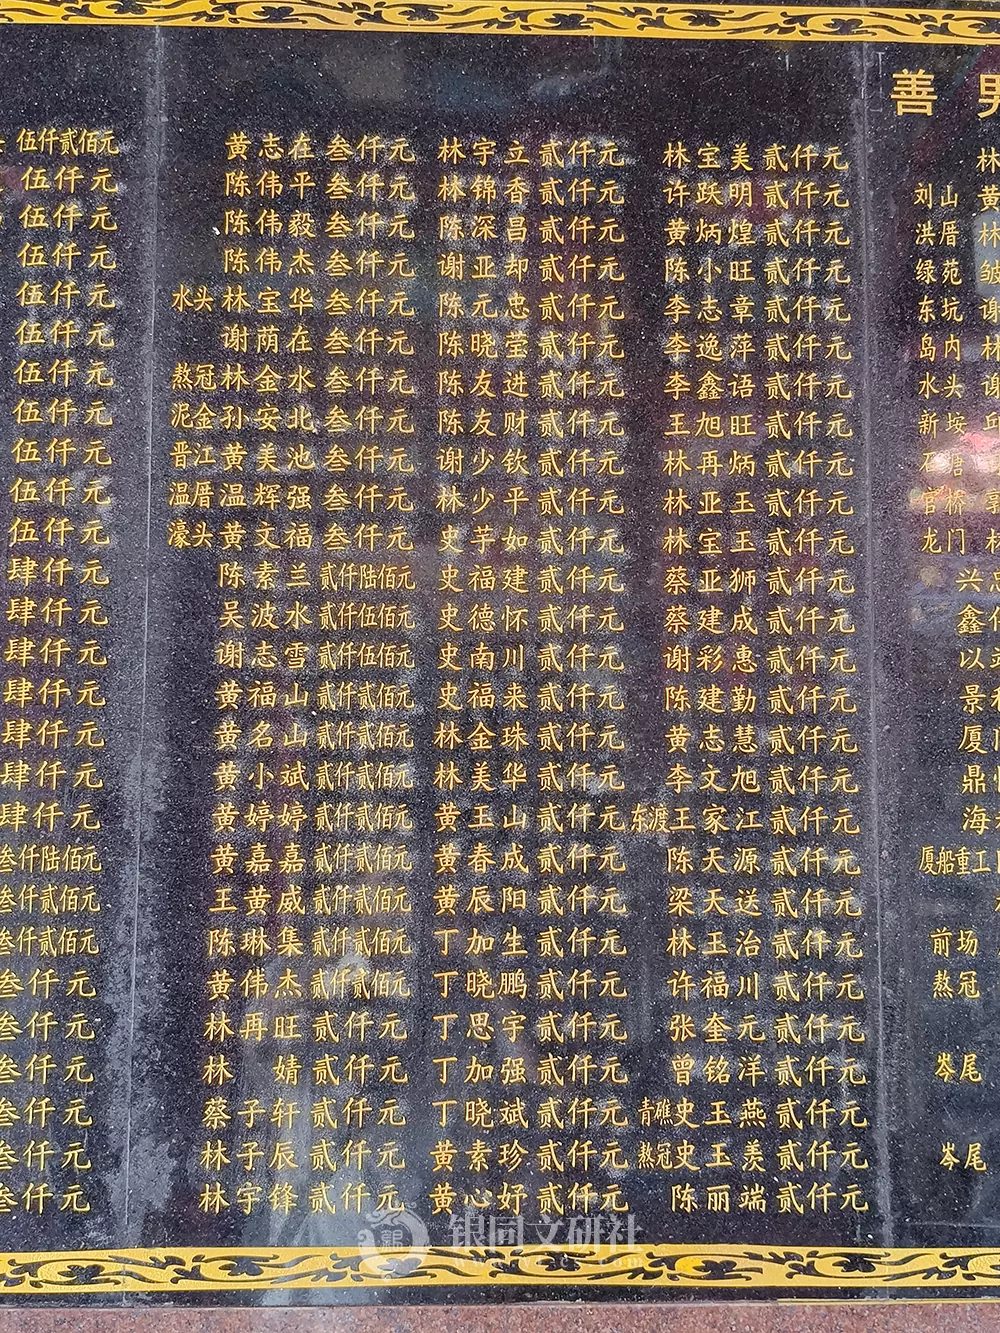 善男
伍仟贰佰元
伍仟元
伍仟元
伍仟元
伍仟元
伍仟元
伍仟元
伍仟元
伍仟元
伍仟元
伍仟元
肆仟元
肆仟元
肆仟元
肆仟元
肆仟元
肆仟元
肆仟元
叁仟陆佰元
叁仟贰佰元
叁仟贰佰元
叁仟元
叁仟元
叁仟元
叁仟元
叁仟元
叁仟元
黄志在 叁仟元
陈伟平 叁仟元
陈伟毅 叁仟元
陈伟杰 叁仟元
水头 林宝华 叁仟元
谢荫在 叁仟元
熬冠 林金水 叁仟元
泥金 孙安北 叁仟元
晋江 黄美池 叁仟元
温厝 温辉强 叁仟元
濠头 黄文福 叁仟元
陈素兰 贰仟陆佰元
吴波水 贰仟伍佰元
谢志雪 贰仟伍佰元
黄福山 贰仟贰佰元
黄名山 贰仟贰佰元
黄小斌 贰仟贰佰元
黄婷婷 贰仟贰佰元
黄嘉嘉 贰仟贰佰元
王黄威 贰仟贰佰元
陈琳集 贰仟贰佰元
黄伟杰 贰仟贰佰元
林再旺 贰仟元
林婧 贰仟元
蔡子轩 贰仟元
林子辰 贰仟元
林宇锋 贰仟元
林宇立 贰仟元
林锦香 贰仟元
陈深昌 贰仟元
谢亚却 贰仟元
陈元忠 贰仟元
陈晓莹 贰仟元
陈友进 贰仟元
陈友财 贰仟元
谢少钦 贰仟元
林少平 贰仟元
史芋如 贰仟元
史福建 贰仟元
史德怀 贰仟元
史南川 贰仟元
史福来 贰仟元
林金珠 贰仟元
林美华 贰仟元
黄玉山 贰仟元
黄春成 贰仟元
黄辰阳 贰仟元
丁加生 贰仟元
丁晓鹏 贰仟元
丁思宇 贰仟元
丁加强 贰仟元
丁晓斌 贰仟元
黄素珍 贰仟元
黄心妤 贰仟元
林宝美 贰仟元
许跃明 贰仟元
黄炳煌 贰仟元
陈小旺 贰仟元
李志章 贰仟元
李逸萍 贰仟元
李鑫语 贰仟元
王旭旺 贰仟元
林再炳 贰仟元
林亚王 贰仟元
林宝王 贰仟元
蔡亚狮 贰仟元
蔡建成 贰仟元
谢彩惠 贰仟元
陈建勤 贰仟元
黄志慧 贰仟元
李文旭 贰仟元
东渡 王家江 贰仟元
陈天源 贰仟元
梁天送 贰仟元
林玉治 贰仟元
许福川 贰仟元
张奎元 贰仟元
曾铭洋 贰仟元
青礁 史玉燕 贰仟元
熬冠 史玉羡 贰仟元
陈丽端 贰仟元
林
刘山 黄
洪厝 林
绿苑
东坑 谢
岛内 林
水头 谢
新垵 丘
石塘
官桥
龙门 林
兴
鑫
以
景
厦
鼎
海
厦船重工
前场
熬冠
岑尾
岑尾
银同文研社